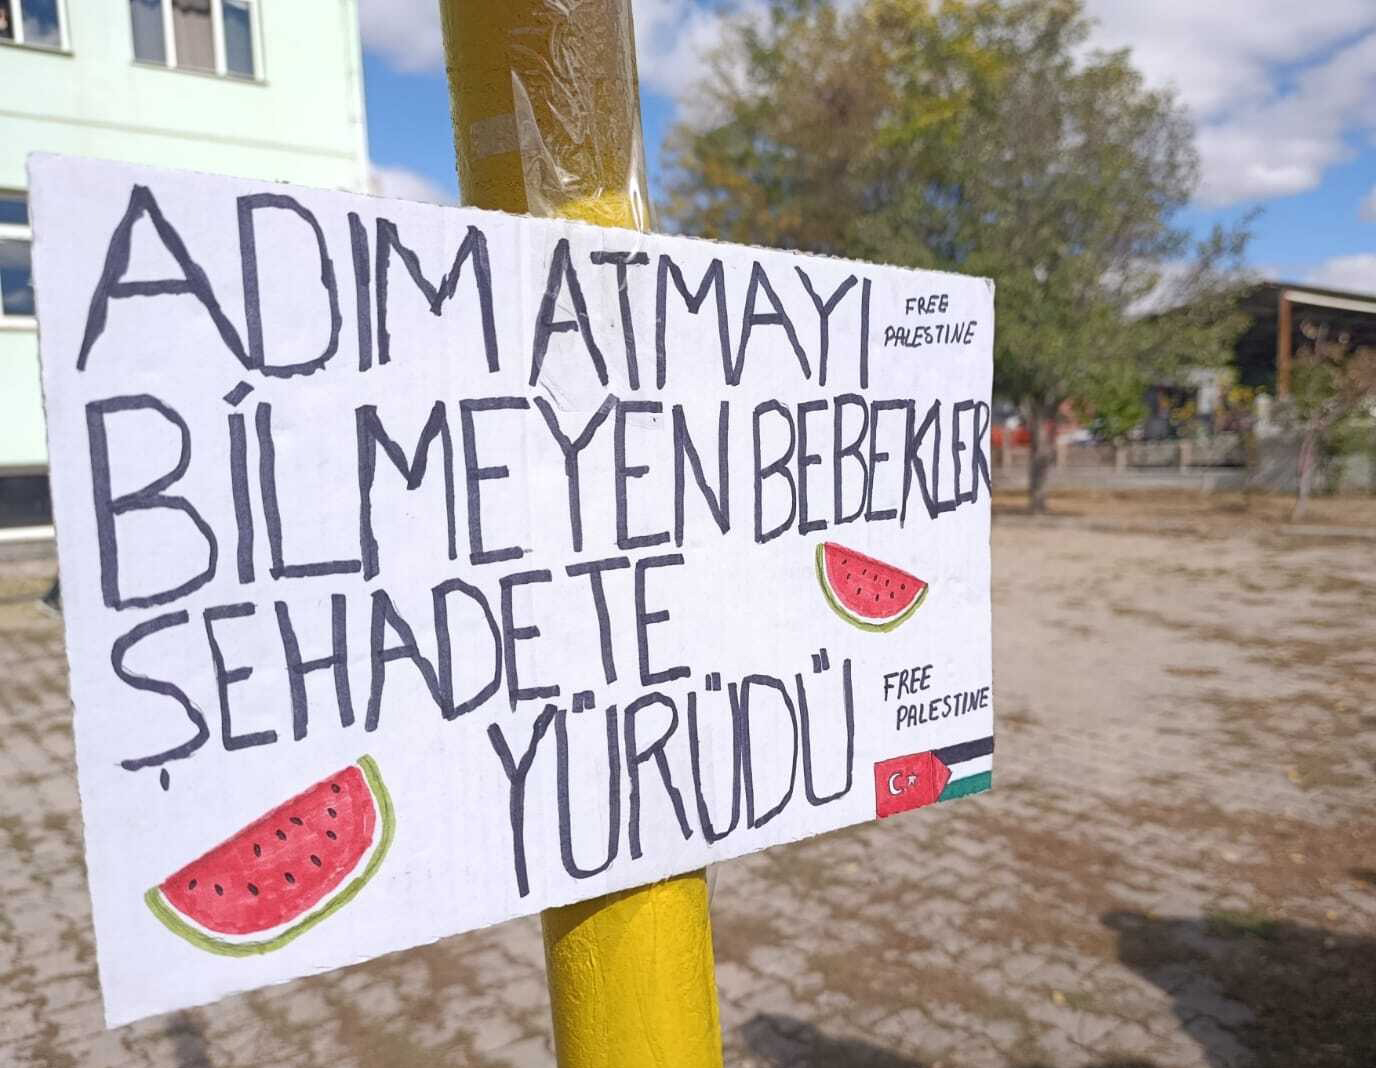 ADIM ATMAYI
FREE
PALESTINE
BİLMEYEN BEBEKLER
ŞEHADETE
YÜRÜDÜ
FREE
PALESTINE